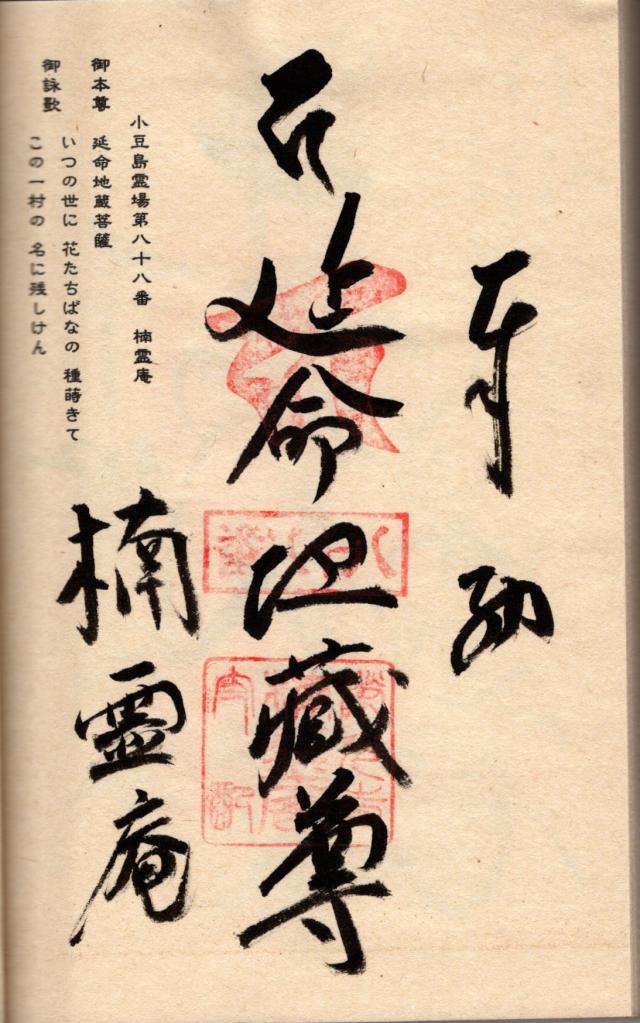 奉納
延命地蔵尊
楠霊庵
小豆島霊場第八十八番 楠霊庵
御本尊 延命地蔵菩薩
御詠歌 いつの世に 花たちばなの 種蒔きて
この一村の 名に残しけん